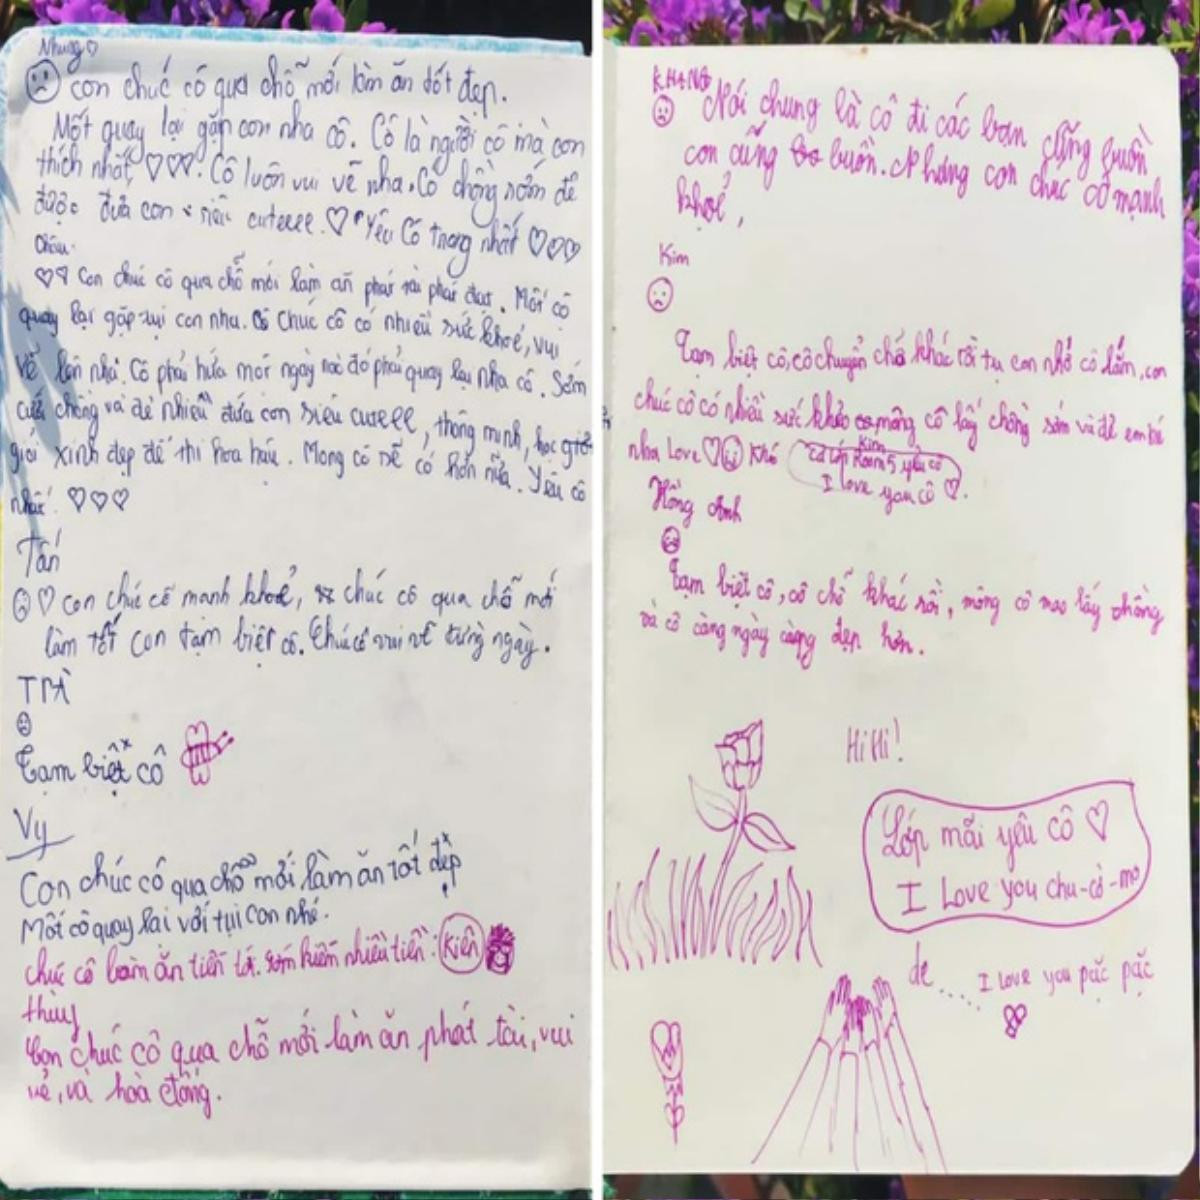 Nhung ♡
con chúc cô qua chỗ mới làm ăn tốt đẹp.
Một quay lại gặp con nha cô. Cô là người cô mà con
thích nhất ♡♡♡. Cô luôn vui vẽ nha. Có chồng sớm đẻ
được đứa con siêu cuteeee. ♡ Yêu Cô trong nhất ♡♡♡
Châu
♡♡ Con chúc cô qua chỗ mới làm ăn phát tài phát đạt. Mốt cô
quay lại gặp tụi con nha. Chúc cô có nhiều sức khoẻ, vui
vẽ lên nhá. Cô phải hứa mốt ngày nào đó phải quay lại nha cô. Sớm
cưới chồng và đẻ nhiều đứa con siêu cuteee, thông minh, học
giỏi xinh đẹp để thi hoa hậu. Mong cô sẽ có hơn nữa. Yêu cô
nhất. ♡♡♡
Tấn
♡ con chúc cô mạnh khoẻ, chúc cô qua chỗ mới
làm tốt con tạm biệt cô. Chúc cô vui vẽ từng ngày.
TRÀ
Tạm biệt cô
Vy
Con chúc cô qua chỗ mới làm ăn tốt đẹp
Mốt cô quay lại với tụi con nhé.
chúc cô làm ăn tiến tới. kiếm nhiều tiền: Kiên
thùy
Con chúc cô qua chỗ mới làm ăn phát tài, vui
vẻ, và hoà đồng.
KHANG
Nói chung là cô đi các bạn cũng buồn
con cũng buồn. Nhưng con chúc cô mạnh
khoẻ,
Kim
Tạm biệt cô, cô chuyển chỗ khác rồi tụi con nhớ cô lắm, con
chúc cô có nhiều sức khỏe mong cô lấy chồng sớm và đẻ em bé
nha Love ♡ Khó
Kim
Cả lớp Room 5 yêu cô
I love you cô ♡.
Hồng Anh
Tạm biệt cô, cô chỗ khác rồi, mông cô mau lấy chồng
và cô càng ngày càng đẹp hơn.
Hi Hi!
Lớp mãi yêu cô ♡
I Love you chu-cà-mo
de...... I love you pặc pặc